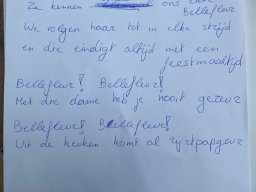 Ze kennen ons
Bellefleur
We volgen haar tot in elke strijd
en die eindigt altijd met een
feestmaaltijd
Bellefleur! Bellefleur!
Met die dame heb je nooit gezeur
Bellefleur! Bellefleur!
Uit de keuken komt al rijstpapgeur